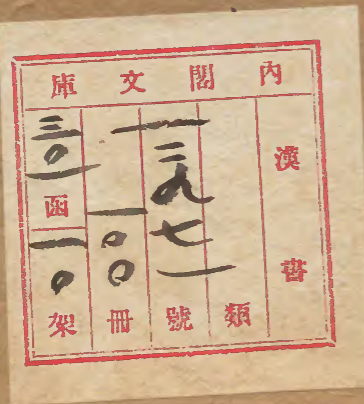 內閣文庫
漢書
類
一三九七一號
一〇〇冊
三〇一函
一〇架